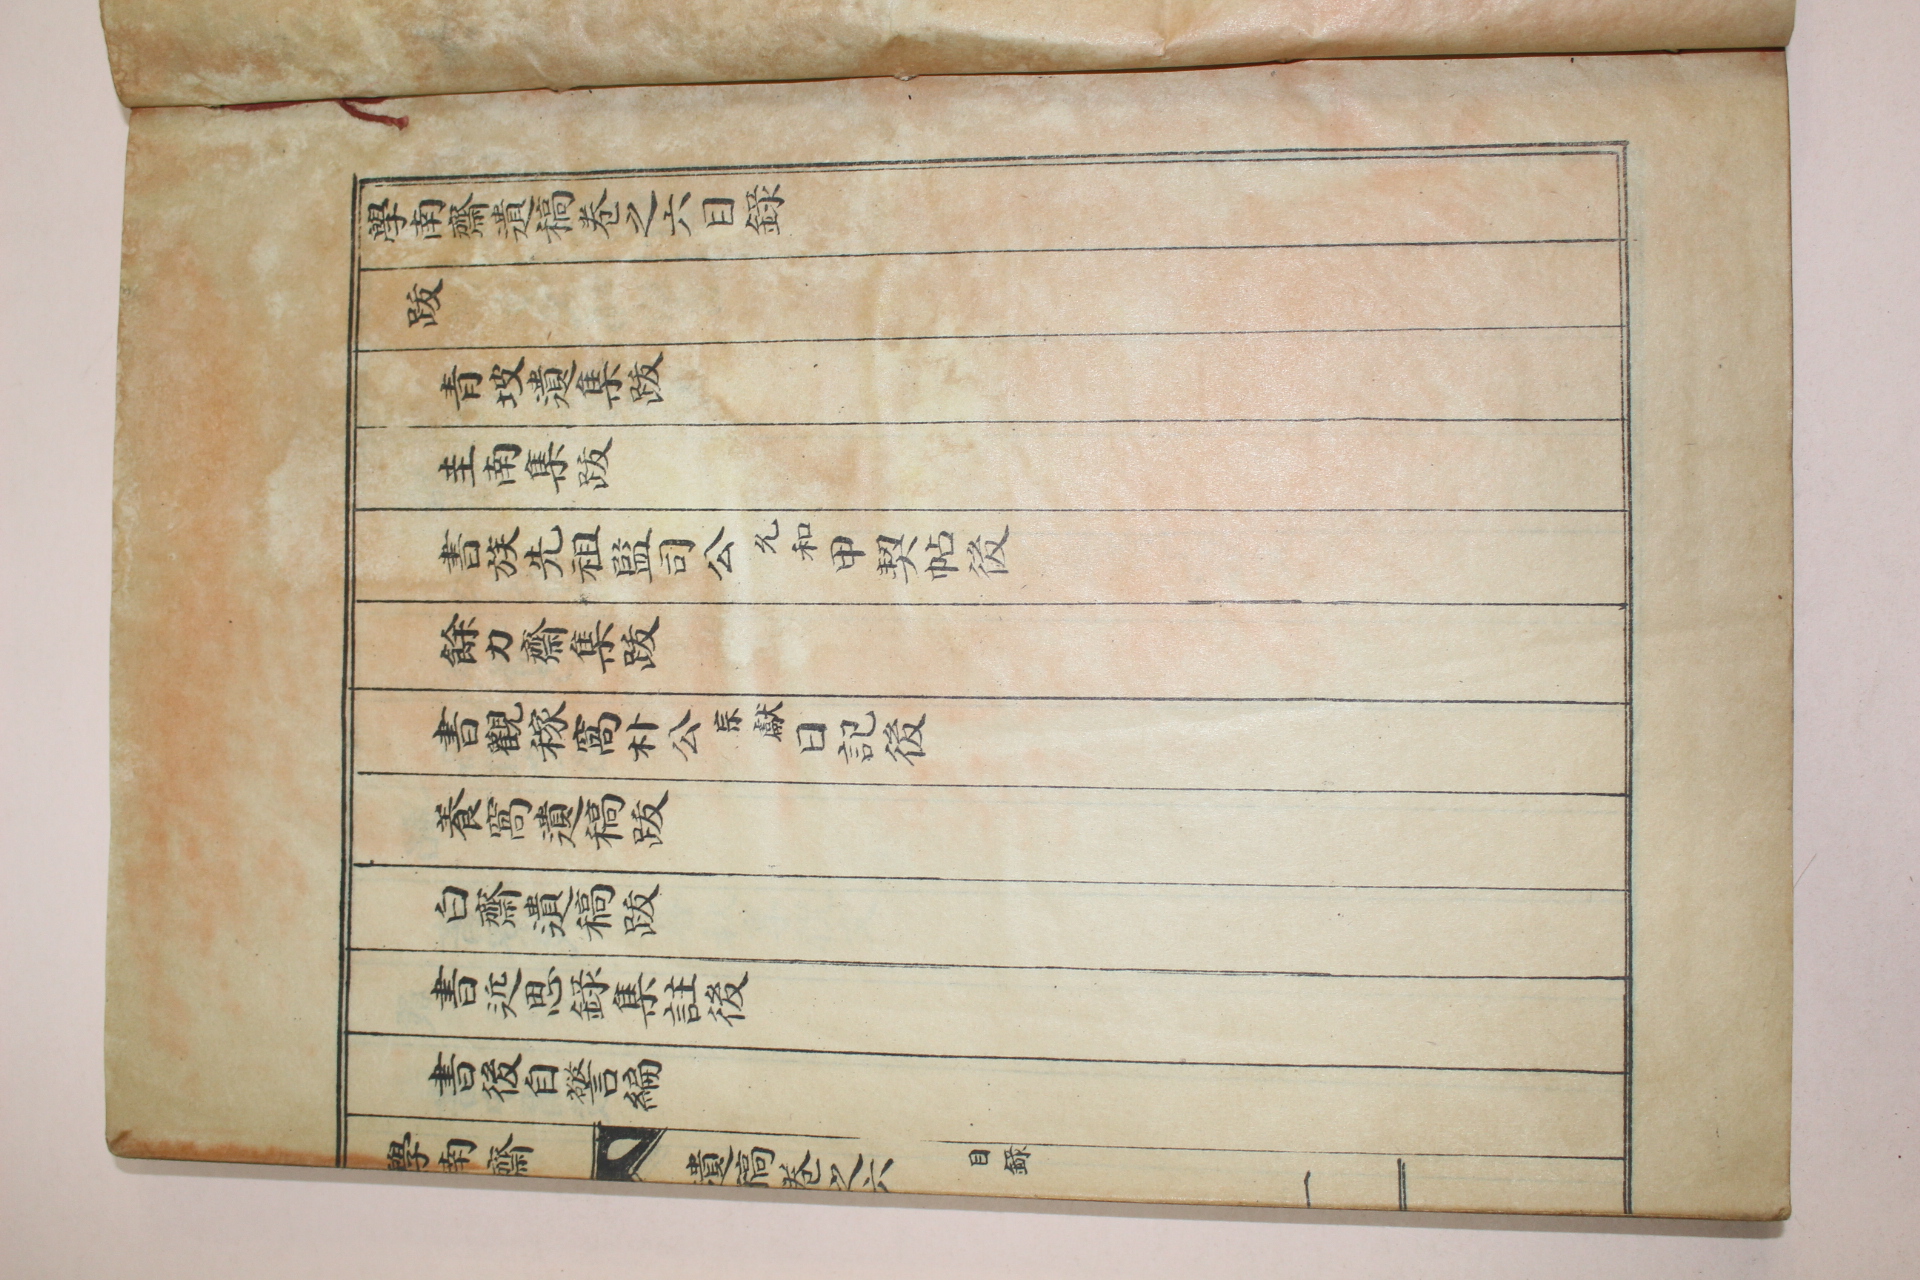 學南齋遺稿卷之六目錄
跋
青坡遺集跋
圭南集跋
書族先祖監司公允和甲契帖後
餘力齋集跋
書觀稼窩朴公宗獻日記後
養窩遺稿跋
白齋遺稿跋
書近思錄集註後
書後自警編
學南齋遺稿卷之六 目錄 一